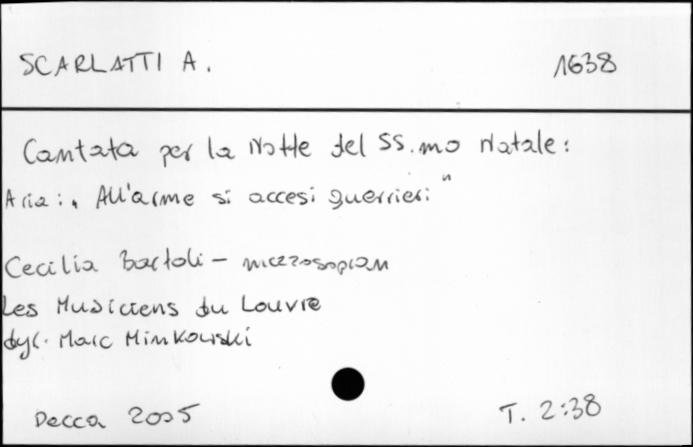 SCARLATTI A. 1638
Cantata per la Notte del SS.mo Natale:
Aria: „All'arme si accesi guerrieri"
Cecilia Bartoli - mezzosopran
Les Musiciens du Louvre
dyr. Marc Minkowski
Decca 2005 T. 2:38